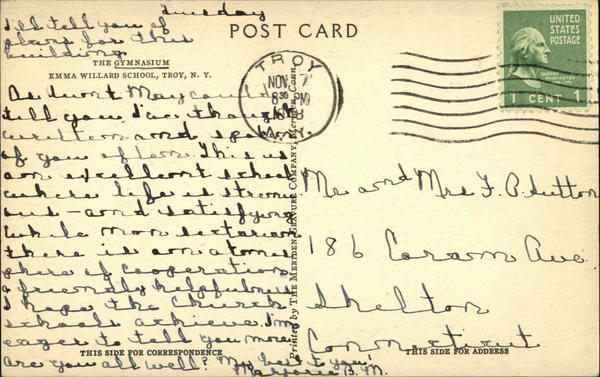 Tuesday
I'll tell you of
plans for this
building.
POST CARD
THE GYMNASIUM
EMMA WILLARD SCHOOL, TROY, N. Y.
UNITED
STATES
POSTAGE
GEORGE
WASHINGTON
1 CENT 1
TROY
NOV 7
8 30 PM
N.Y.
As Aunt May could
tell you I've thought
written and spoken
of you often. This is
an excellent school
where life is strenu
ous - and satisfying
While non sectarian
there is an atmos
phere of cooperation
& friendly helpfulness
I hope the church
schools achieve. I'm
eager to tell you more
Are you all well? My best to you,
Marjorie B. M.
THIS SIDE FOR CORRESPONDENCE
Printed by THE MERIDEN GRAVURE COMPANY, Meriden, Conn.
Mr and Mrs F. B. Sutton
186 Coram Ave
Shelton
Connecticut
THIS SIDE FOR ADDRESS